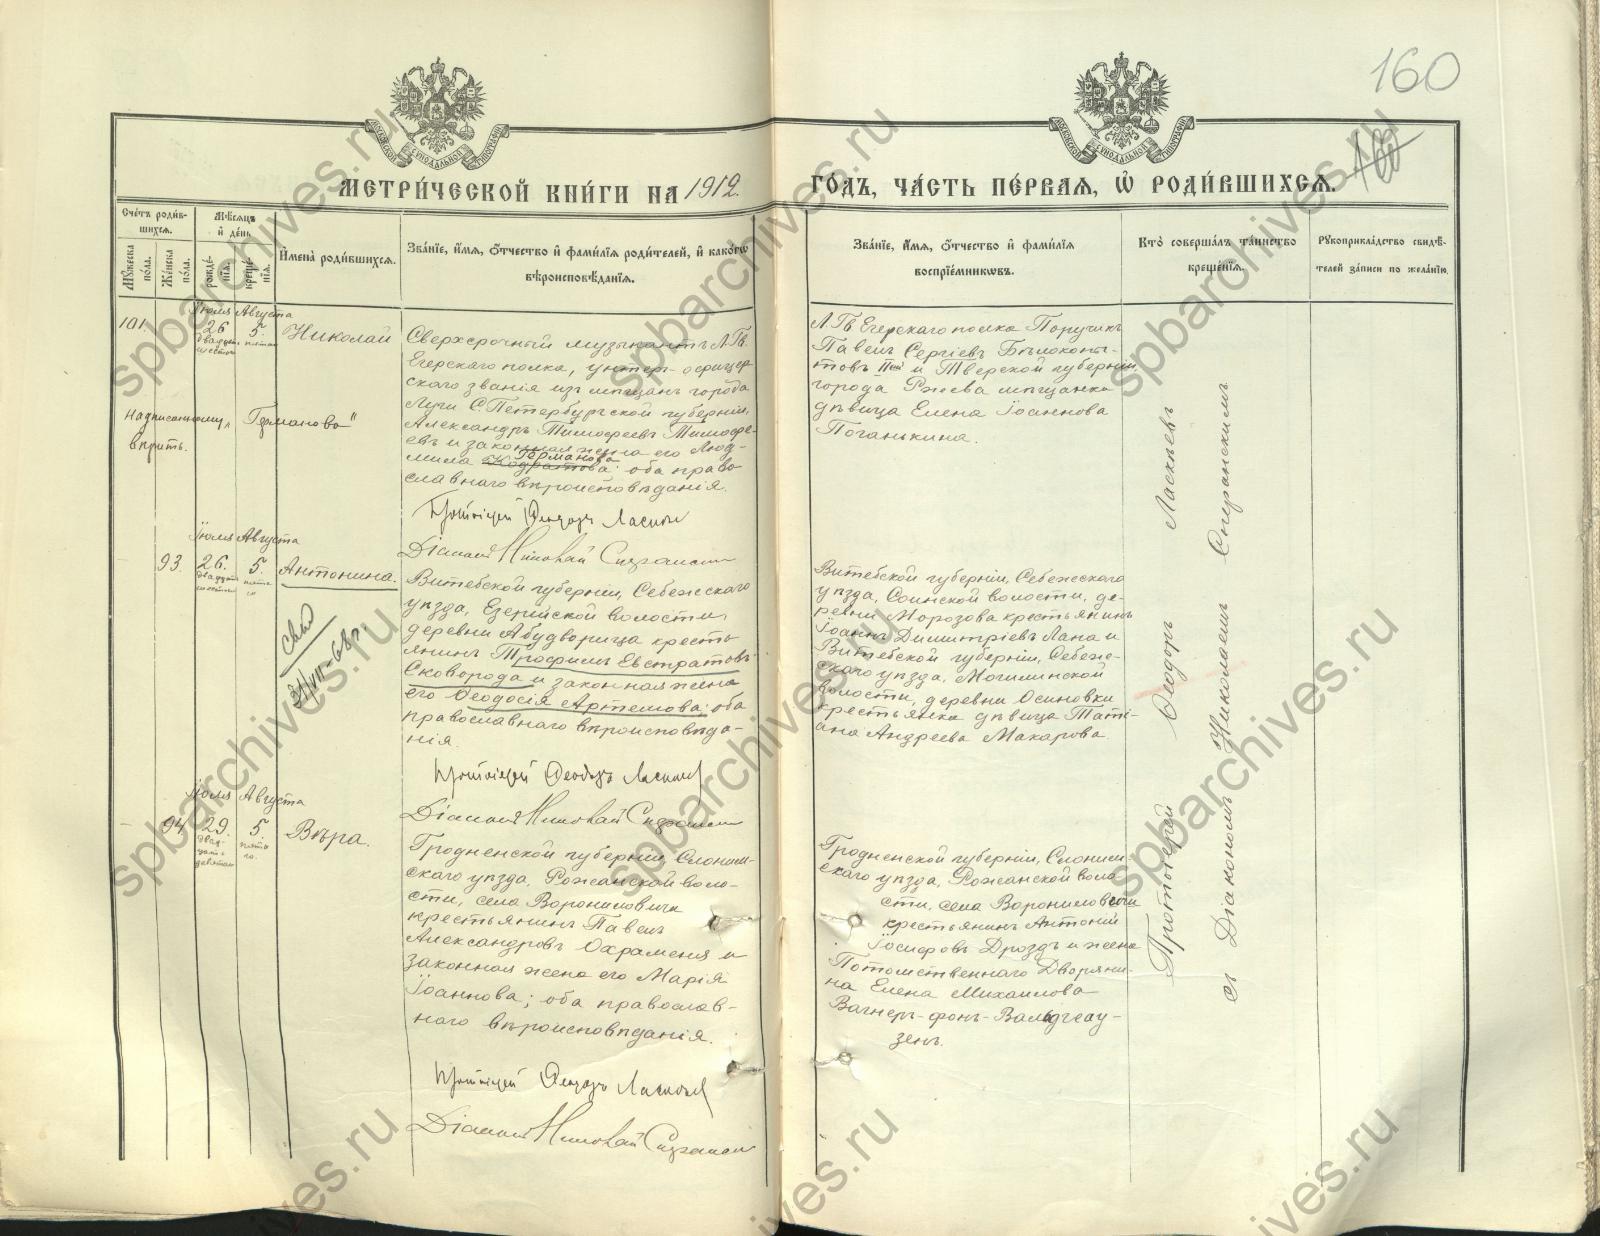 160
МЕТРИ́ЧЕСКОЙ КНИ́ГИ НА 1912.
ГО́ДЪ, ЧА́СТЬ ПЕ́РВАЯ, Ѡ҆ РОДИ́ВШИХСЯ.
Сче́тъ роди́в-
шихся.
Мꙋ́жеска по́ла.
Же́нска по́ла.
Мѣ́сяцъ
и҆ де́нь
рожде́-
нїя.
креще́-
нїя.
И҆мена̀ роди́вшихся.
Зва́нїе, и҆́мя, ѻ҆́тчество и҆ фами́лїя роди́телей, и҆ како́гѡ
вѣроисповѣ́данїя.
Зва́нїе, и҆́мя, ѻ҆́тчество и҆ фами́лїя
воспрїе́мникѡвъ.
Кто̀ соверша́лъ та́инство
креще́нїя.
Рꙋкоприкла́дство свидѣ́-
телей за́писи по жела́нїю.
101.
Іюля Августа
26 5.
двадцать шестого
пятаго
Николай
Сверхсрочный музыкантъ Л.Гв.
Егерскаго полка, унтеръ-офицер-
скаго званія изъ мѣщанъ города
Луги С.Петербургской губерніи,
Александръ Тимофеевъ Тимофе-
евъ и законная жена его Люд-
Германова
мила Кодратова: оба право-
славнаго вѣроисповѣданія.
Надписанному „Германова"
вѣрить.
Протоіерей Ѳеодоръ Ласкѣевъ
Діаконъ Николай Сперанскій
Л.Гв. Егерскаго полка Поручикъ
Павелъ Сергіевъ Бѣлокопы-
товъ IIой и Тверской губерніи,
города Ржева мѣщанка
дѣвица Елена Іоаннова
Поганькина.
Іюля Августа
93. 26. 5.
двадцать шестого
пятаго
Антонина.
Витебской губерніи, Себежскаго
уѣзда, Езерійской волости,
деревни Абудворица кресть-
янинъ Трофимъ Евстратовъ
Сковорода и законная жена
его Ѳеодосія Артемова: оба
православнаго вѣроисповѣда-
нія.
Протоіерей Ѳеодоръ Ласкѣевъ
Діаконъ Николай Сперанскій
Витебской губерніи, Себежскаго
уѣзда, Соинской волости, де-
ревни Морозова крестьянинъ
Іоаннъ Димитріевъ Лана и
Витебской губерніи, Себеж-
скаго уѣзда, Могилинской
волости, деревни Осиновки
крестьянка дѣвица Таті-
ана Андреева Макарова.
Іюля Августа
94. 29. 5.
двад-
цать
девятаго
пята-
го.
Вѣра.
Гродненской губерніи, Слоним-
скаго уѣзда, Рожанской воло-
сти, села Ворониловичи
крестьянинъ Павелъ
Александровъ Охраменя и
законная жена его Марія
Іоаннова; оба православ-
наго вѣроисповѣданія.
Протоіерей Ѳеодоръ Ласкѣевъ
Діаконъ Николай Сперанскій
Гродненской губерніи, Слоним-
скаго уѣзда, Рожанской воло-
сти, села Ворониловичи
крестьянинъ Антоній
Іосифовъ Дроздъ и жена
Потомственнаго Дворяни-
на Елена Михаилова
Вагнеръ-фонъ-Вальдгеау-
зенъ.
Протоіерей Ѳеодоръ Ласкѣевъ
съ Діакономъ Николаемъ Сперанскимъ
spbarchives.ru